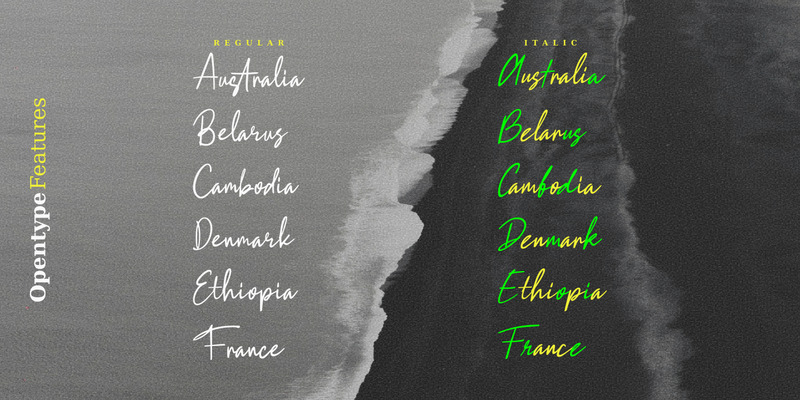 Opentype Features
REGULAR
Australia
Belarus
Cambodia
Denmark
Ethiopia
France
ITALIC
Australia
Belarus
Cambodia
Denmark
Ethiopia
France